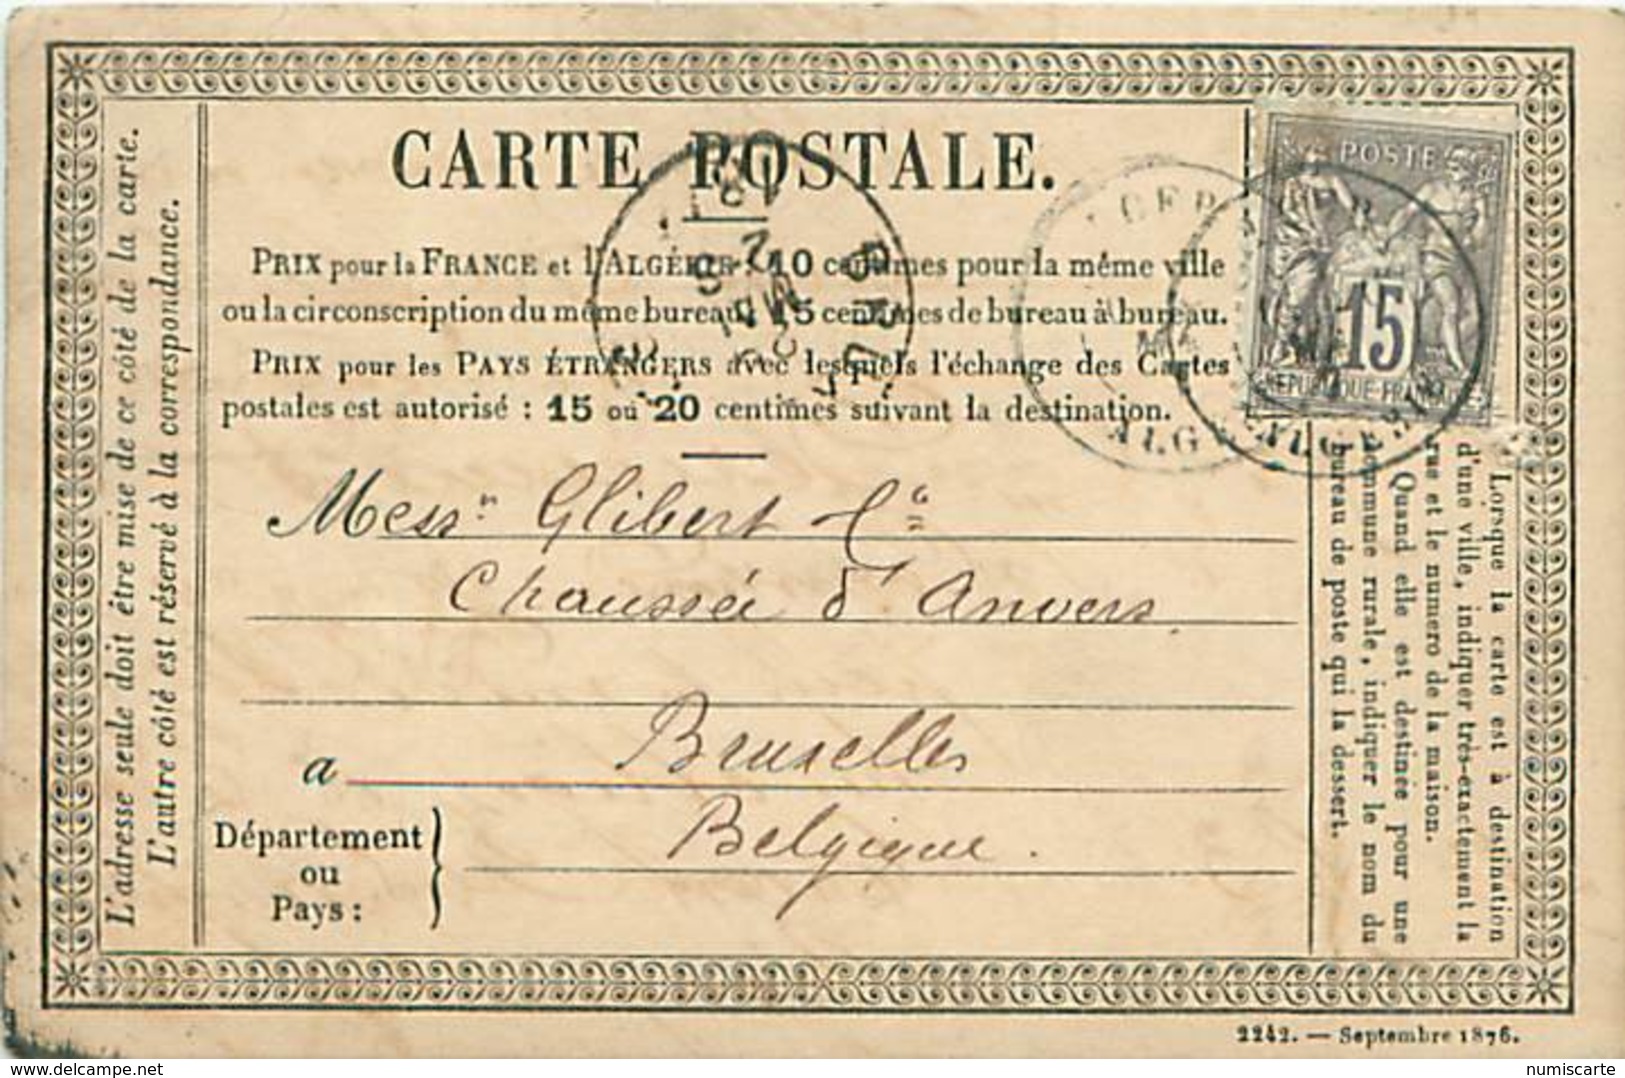 CARTE POSTALE.
PRIX pour la FRANCE et l'ALGÉRIE : 10 centimes pour la même ville
ou la circonscription du même bureau, 15 centimes de bureau à bureau.
PRIX pour les PAYS ÉTRANGERS avec lesquels l'échange des Cartes
postales est autorisé : 15 ou 20 centimes suivant la destination.
POSTE
15
ALG
Mess.rs Glibert & Cie
Chaussée d'Anvers
a Bruxelles
Département
ou
Pays :
Belgique.
L'adresse seule doit être mise de ce côté de la carte.
L'autre côté est réservé à la correspondance.
Lorsque la carte est à destination
d'une ville, indiquer très-exactement la
rue et le numéro de la maison.
Quand elle est destinée pour une
commune rurale, indiquer le nom du
bureau de poste qui la dessert.
2242. — Septembre 1876.
www.delcampe.net
numiscarte